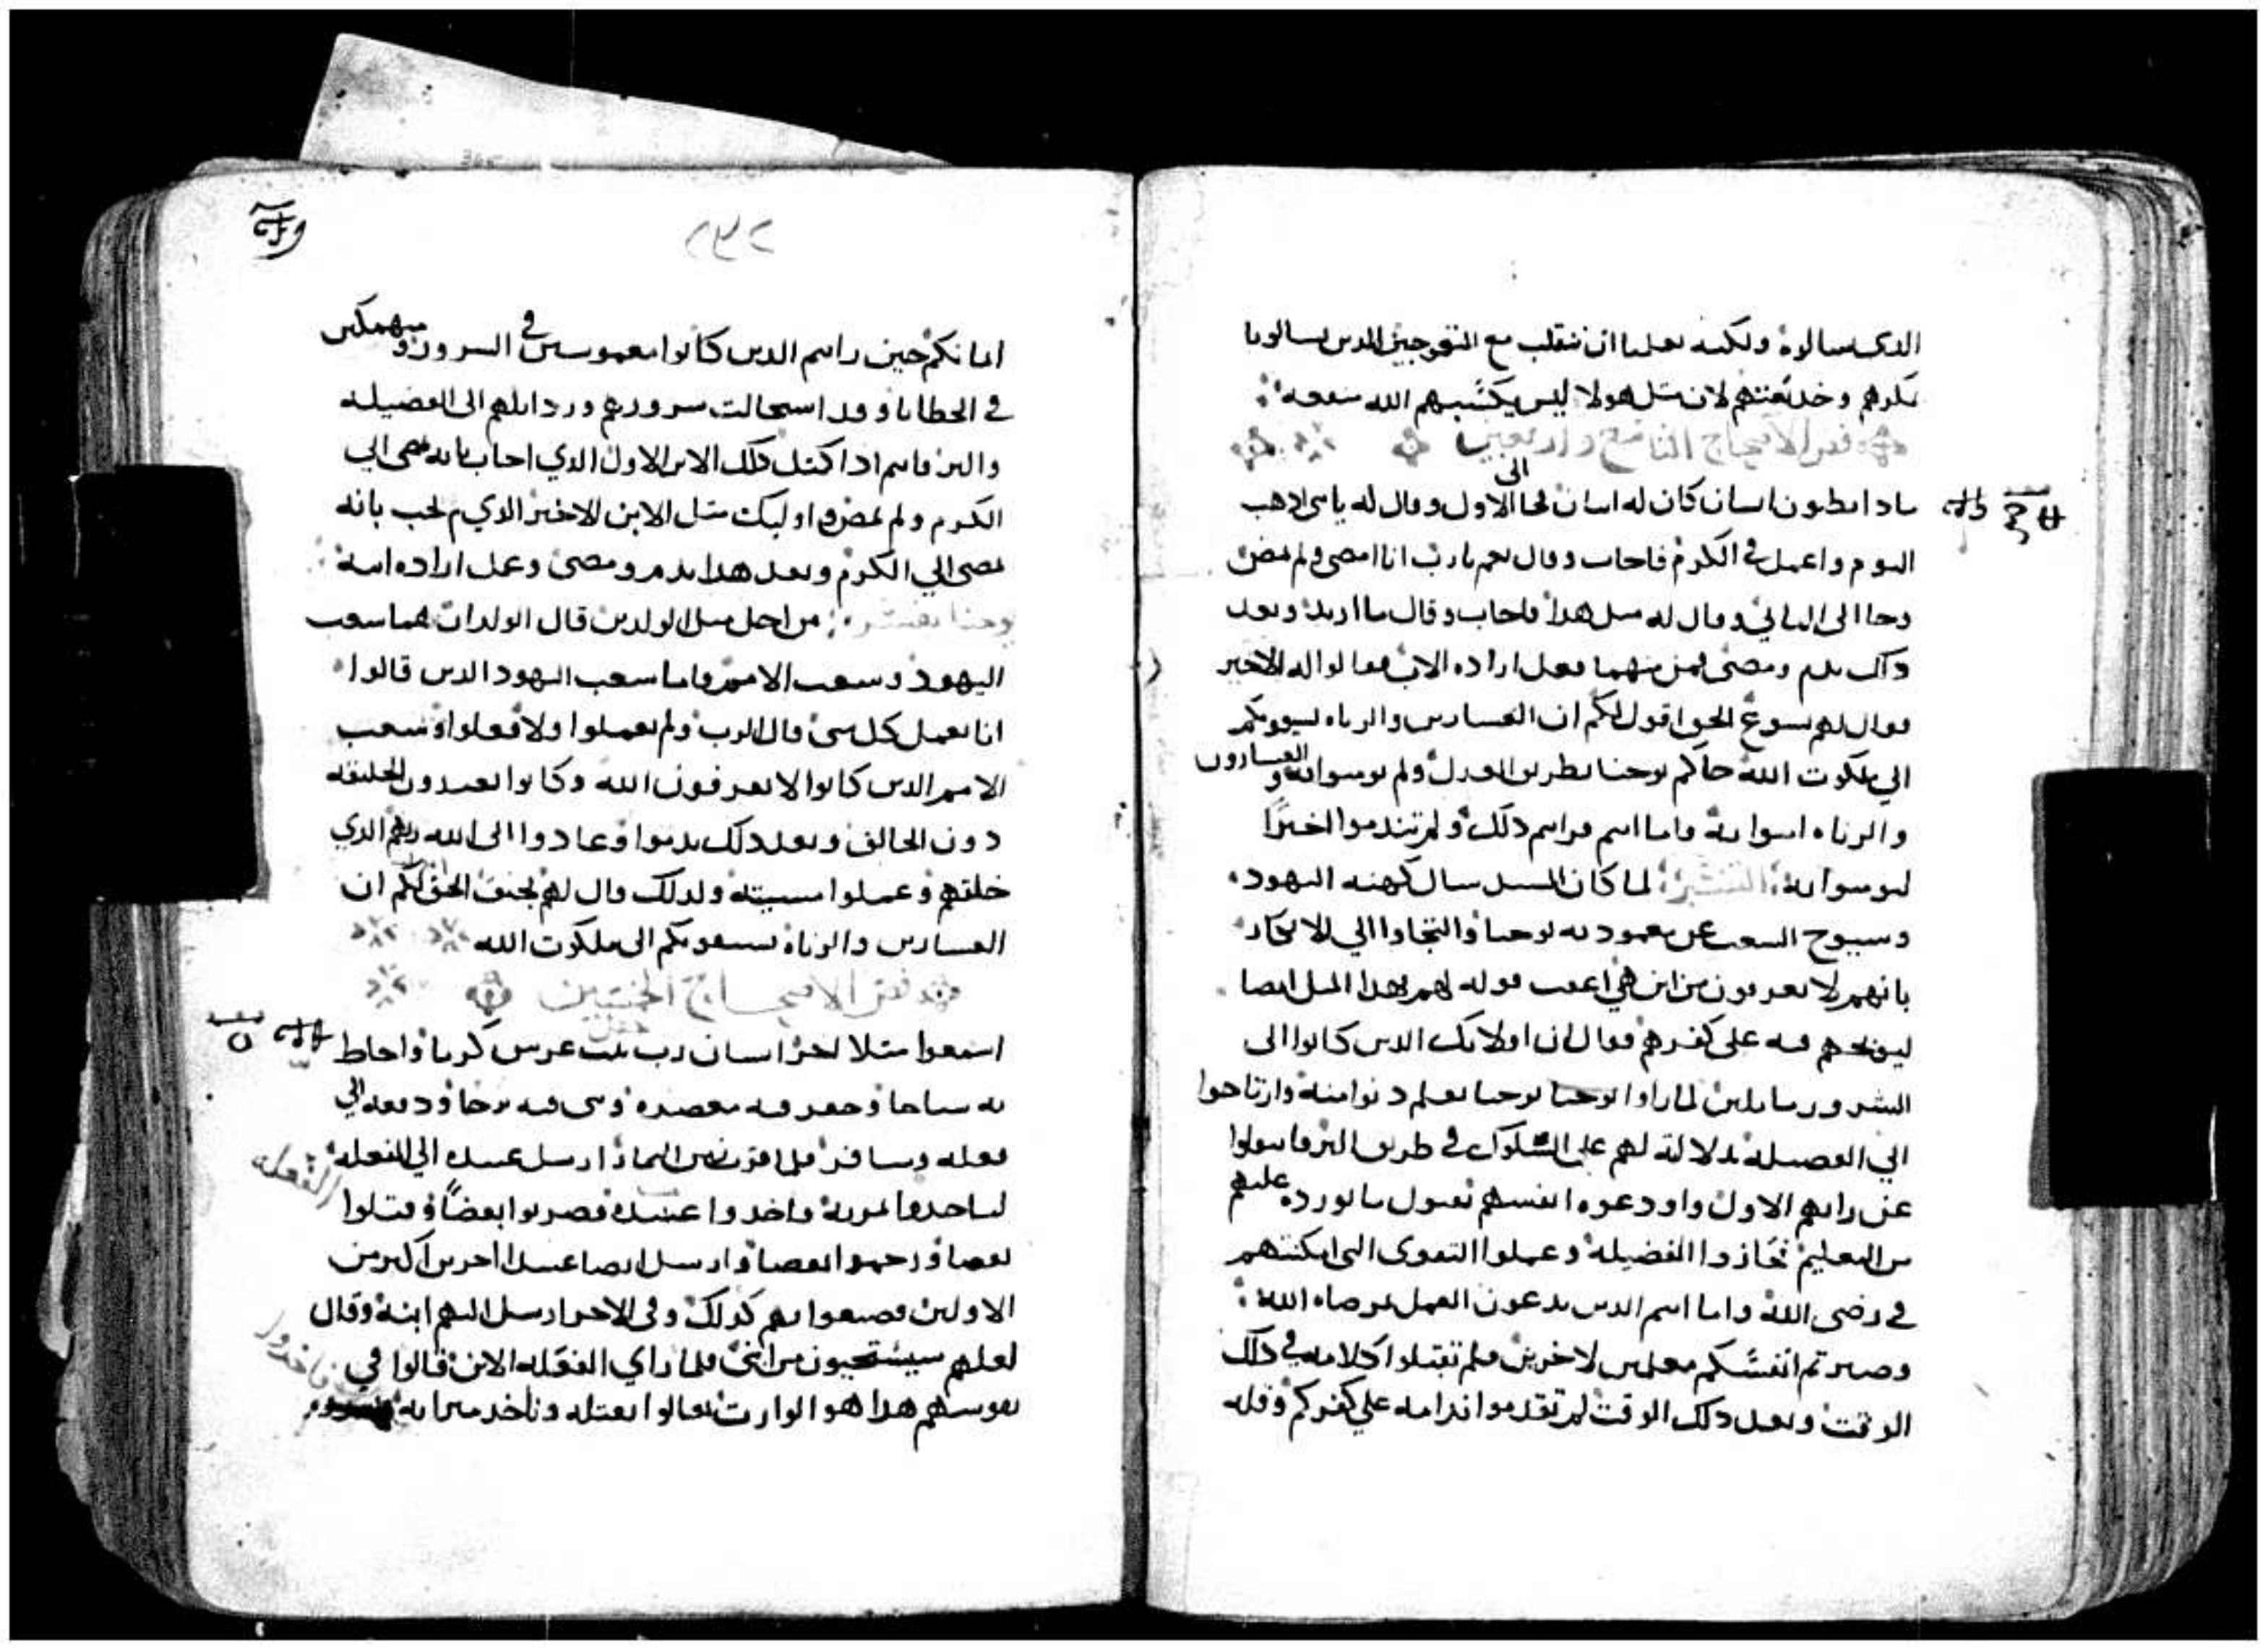 الدى سالوه ولكنه يعلمنا ان ننقلب مع المتعوجين الدين يسالونا
بمكرهم وخديعتهم لان متل هولا ليس يكسبهم الله منفعه
فص الاصحاح التاسع واربعين
مادا تظنون انسان كان له ابنان فجا الى الاول وقال له يابنى ادهب
اليوم واعمل فى الكرم فاجاب وقال نعم يارب انا امضى ولم يمض
وجا الى التاني وقال له متل هدا فاجاب وقال ما اريد وبعد
داك ندم ومضى فمن منهما فعل اراده الاب فقالوا له الاخير
فقال لهم يسوع الحق اقول لكم ان العسارين والزناه يسبقونكم
الي ملكوت الله جاكم يوحنا بطريق العدل ولم تومنوا به والعسارون
والزناه امنوا به واما انتم فرايتم دلك ولم تندموا اخيرًا
لتومنوا به التفسير لما كان المسيح سال كهنه اليهود
وشيوخ الشعب عن معموديه يوحنا والتجاوا الي الانكار
بانهم لا يعرفون من اين هي اعقب قوله لهم بهدا المتل ايضا
ليوبخهم فيه على كفرهم فقال ان اولايك الدين كانوا الى
الشرور مايلين لما راوا يوحنا يعلم دنوا منه وارتاحوا
الي الفضيله بدلالته لهم على السلوك في طريق البر
عن رايهم الاول واودعوه انفسهم بقبول ما يورده عليهم
من التعليم فحازوا الفضيله وعملوا التقوى التى امكنتهم
في رضى الله واما انتم الدين تدعون العمل بمرضاه الله
وصيرتم انفسكم معلمين لاخرين فلم تقبلوا كلامه في دلك
الوقت وبعد دلك الوقت لم تقدموا ندامه علي كفركم وقله
٢٣٢
امانكم حين رايتم الدين كانوا مغموسين في السرور ومنهمكين
في الخطايا وقد استحالت سرورهم وردايلهم الى الفضيله
والبر فانتم ادا كمتل دلك الابن الاول الدي اجاب بانه يمضى الي
الكرم ولم يمض واوليك متل الابن الاخير الدي لم يجب بانه
يمضى الي الكرم وبعد هدا ندم ومضى وعمل اراده ابيه
يوحنا يفسر من اجل متل الولدين قال الولدان هما شعب
اليهود وشعب الامم واما شعب اليهود الدين قالوا
انا نعمل كل شى قال الرب ولم يعملوا ولا فعلوا وشعب
الامم الدين كانوا لا يعرفون الله وكانوا يعبدون الخليقه
دون الخالق وبعد دلك ندموا وعادوا الى الله ربهم الدي
خلقهم وعملوا مسيته ولدلك قال لهم بحق الحق لكم ان
العسارين والزناه يسبقونكم الى ملكوت الله
فص الاصحاح الخمسين
اسمعوا متلا اخر انسان رب بيت غرس كرما واحاط
به سياجا وحفر فيه معصره وبنى فيه برجا ودفعه الي
فعله وسافر فلما قرب زمن التمار ارسل عبيده الي الفعله
لياخدوا تمرته فاخدوا عبيده فضربوا بعضًا وقتلوا
بعضا ورجموا بعضا وارسل ايضا عبيدا اخرين اكتر من
الاولين فصنعوا بهم كدلك وفى الاخر ارسل اليهم ابنه وقال
لعلهم سيستحيون من ابنى فلما راي الفعله الابن قالوا في
نفوسهم هدا هو الوارت تعالوا نقتله وناخد ميراته
الفعله
فاخدوا